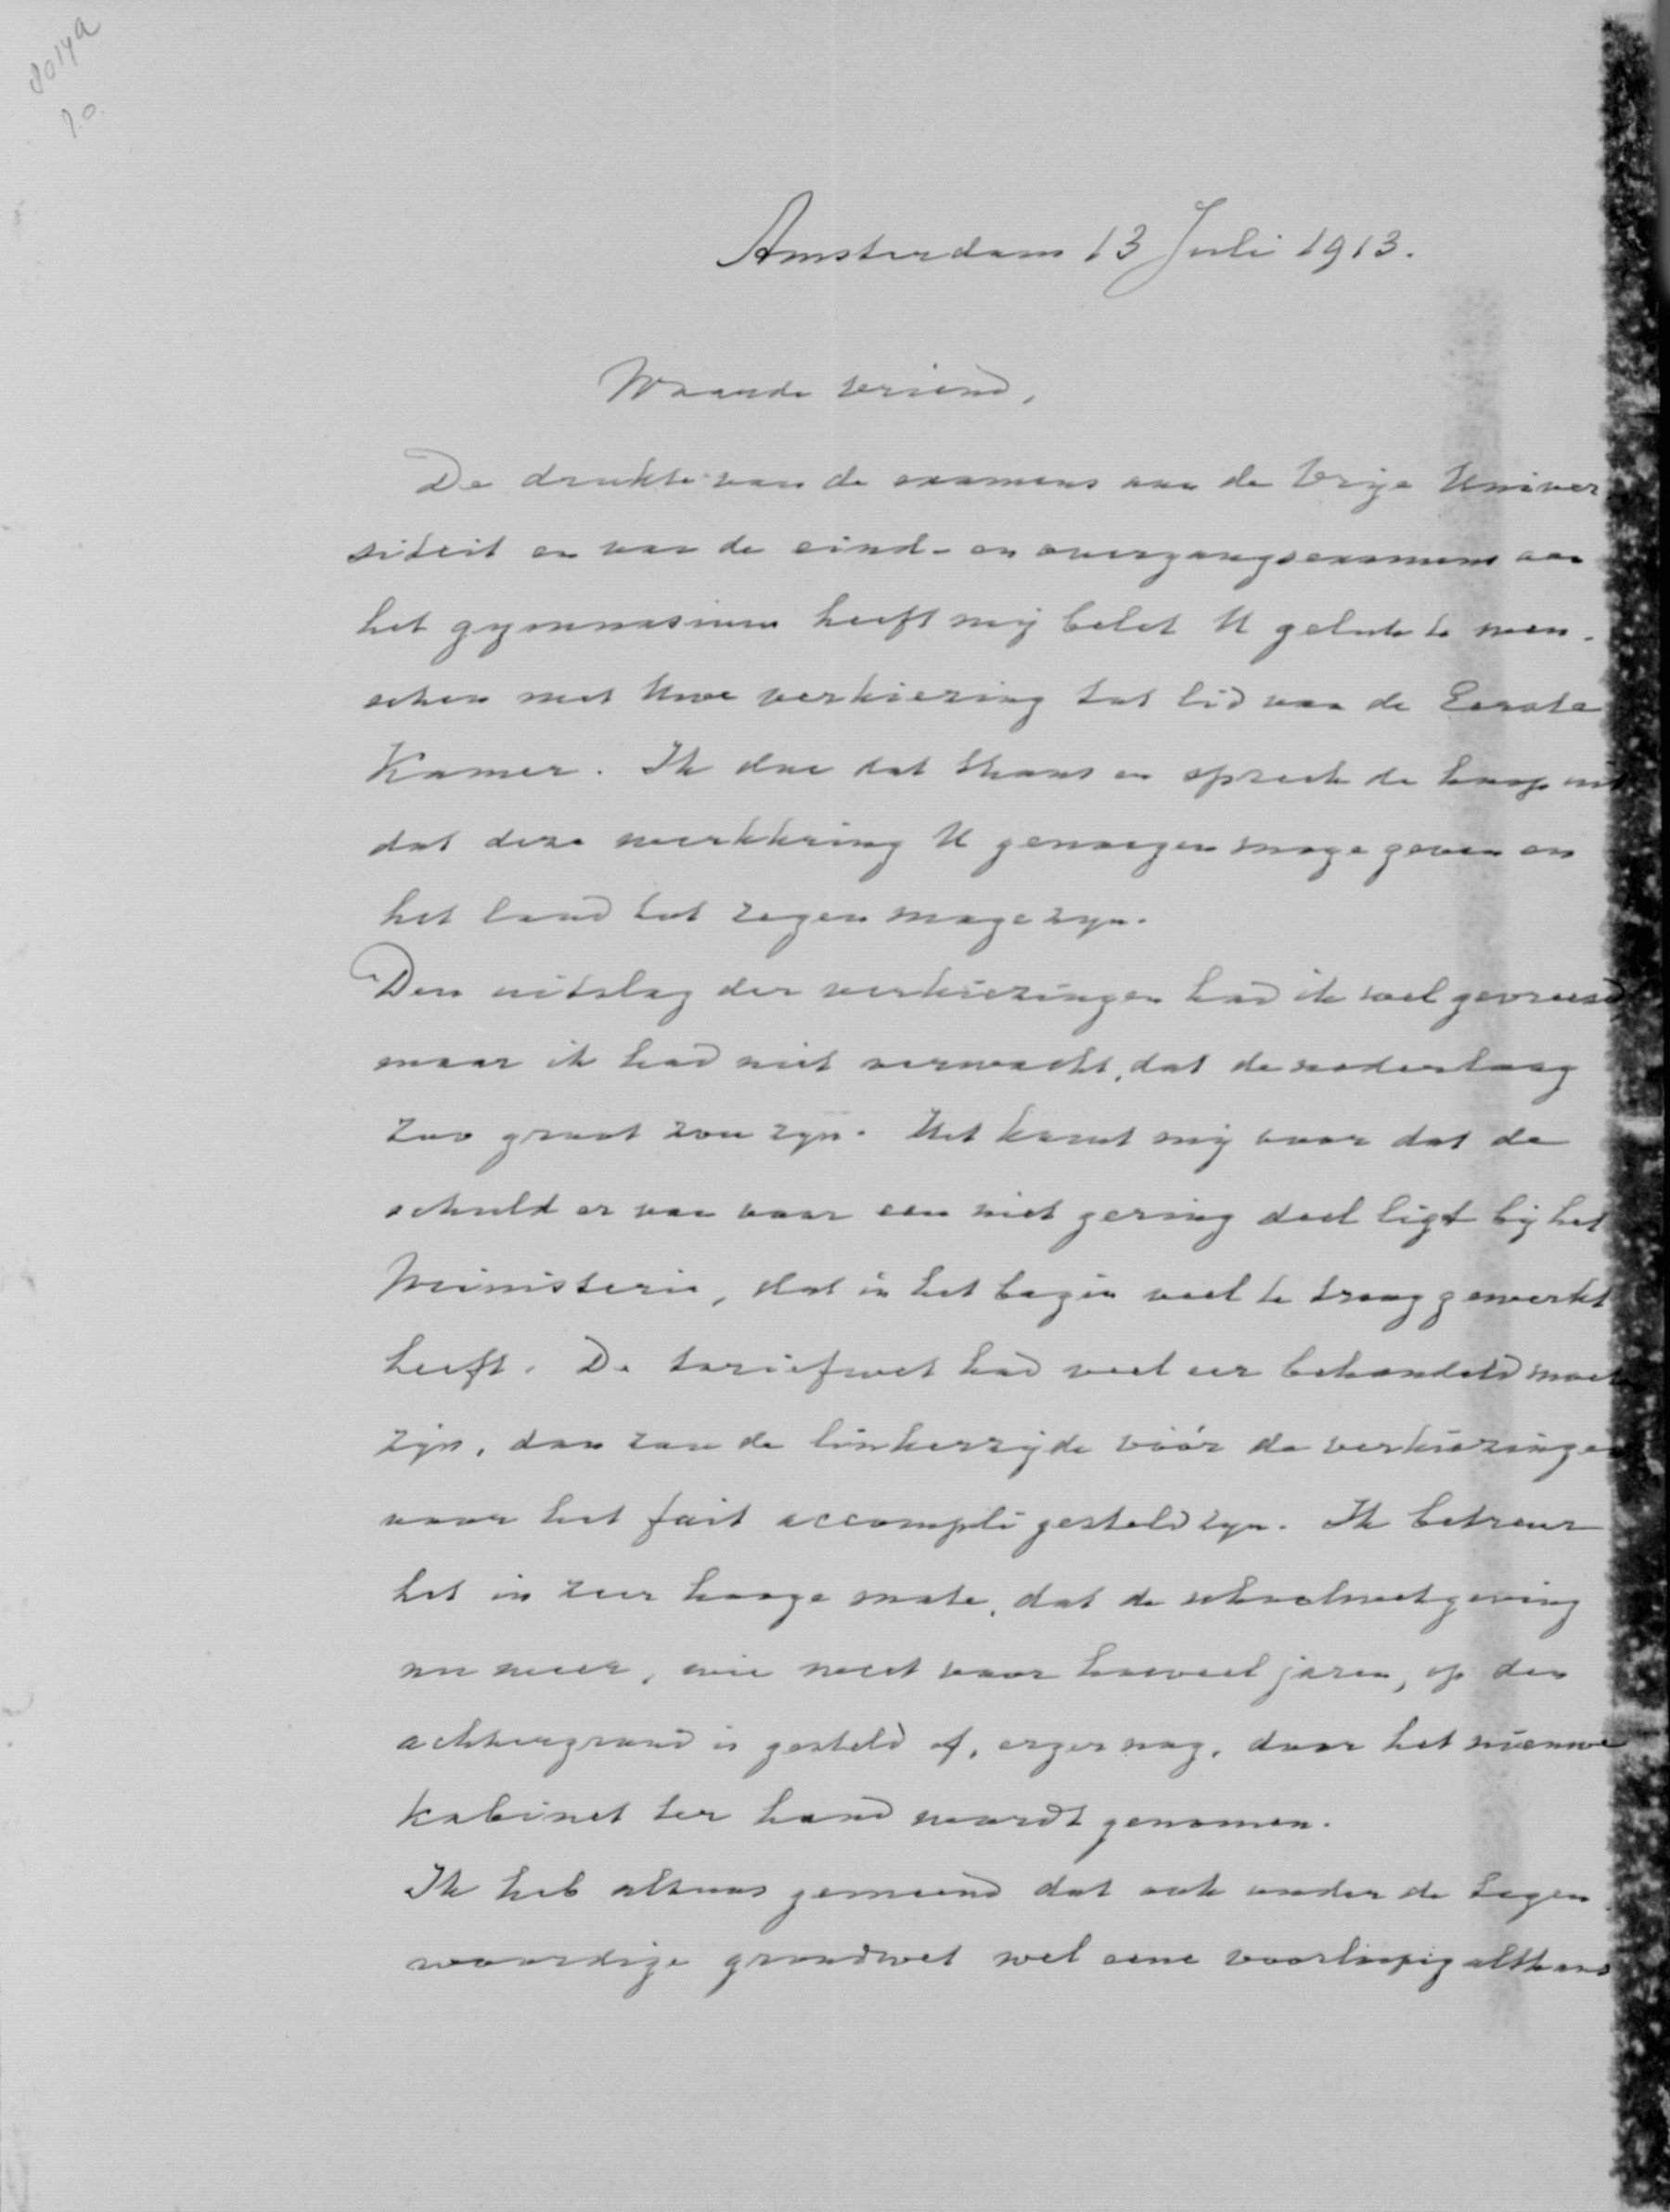 8014a
Amsterdam 13 Juli 1913.
Waarde vriend,
De drukte van de examens aan de Vrije Univer
siteit en van de eind- en overgangsexamens aan
het gymnasium heeft mij belet U geluk te wen-
schen met Uwe verkiezing tot lid van de Eerste
Kamer. Ik doe dat thans en spreek de hoop uit
dat deze werkkring U genoegen moge geven en
het land tot zegen moge zijn.
Den uitslag der verkiezingen had ik wel gevreesd,
maar ik had niet verwacht, dat de nederlaag
zoo groot zou zijn. Het komt mij voor dat de
schuld er van voor een niet gering deel ligt bij het
Ministerie, dat in het begin veel te traag gewerkt
heeft. De tariefwet had veel eer behandeld moeten
zijn, dan zou de linkerzijde vóór de verkiezingen
voor het fait accompli gesteld zijn. Ik betreur
het in zeer hooge mate, dat de schoolwetgeving
nu weer, wie weet voor hoeveel jaren, op den
achtergrond is gesteld of, erger nog, door het nieuwe
kabinet ter hand wordt genomen.
Ik heb altoos gemeend dat ook onder de tegen
woordige grondwet wel eene voorloopig althans